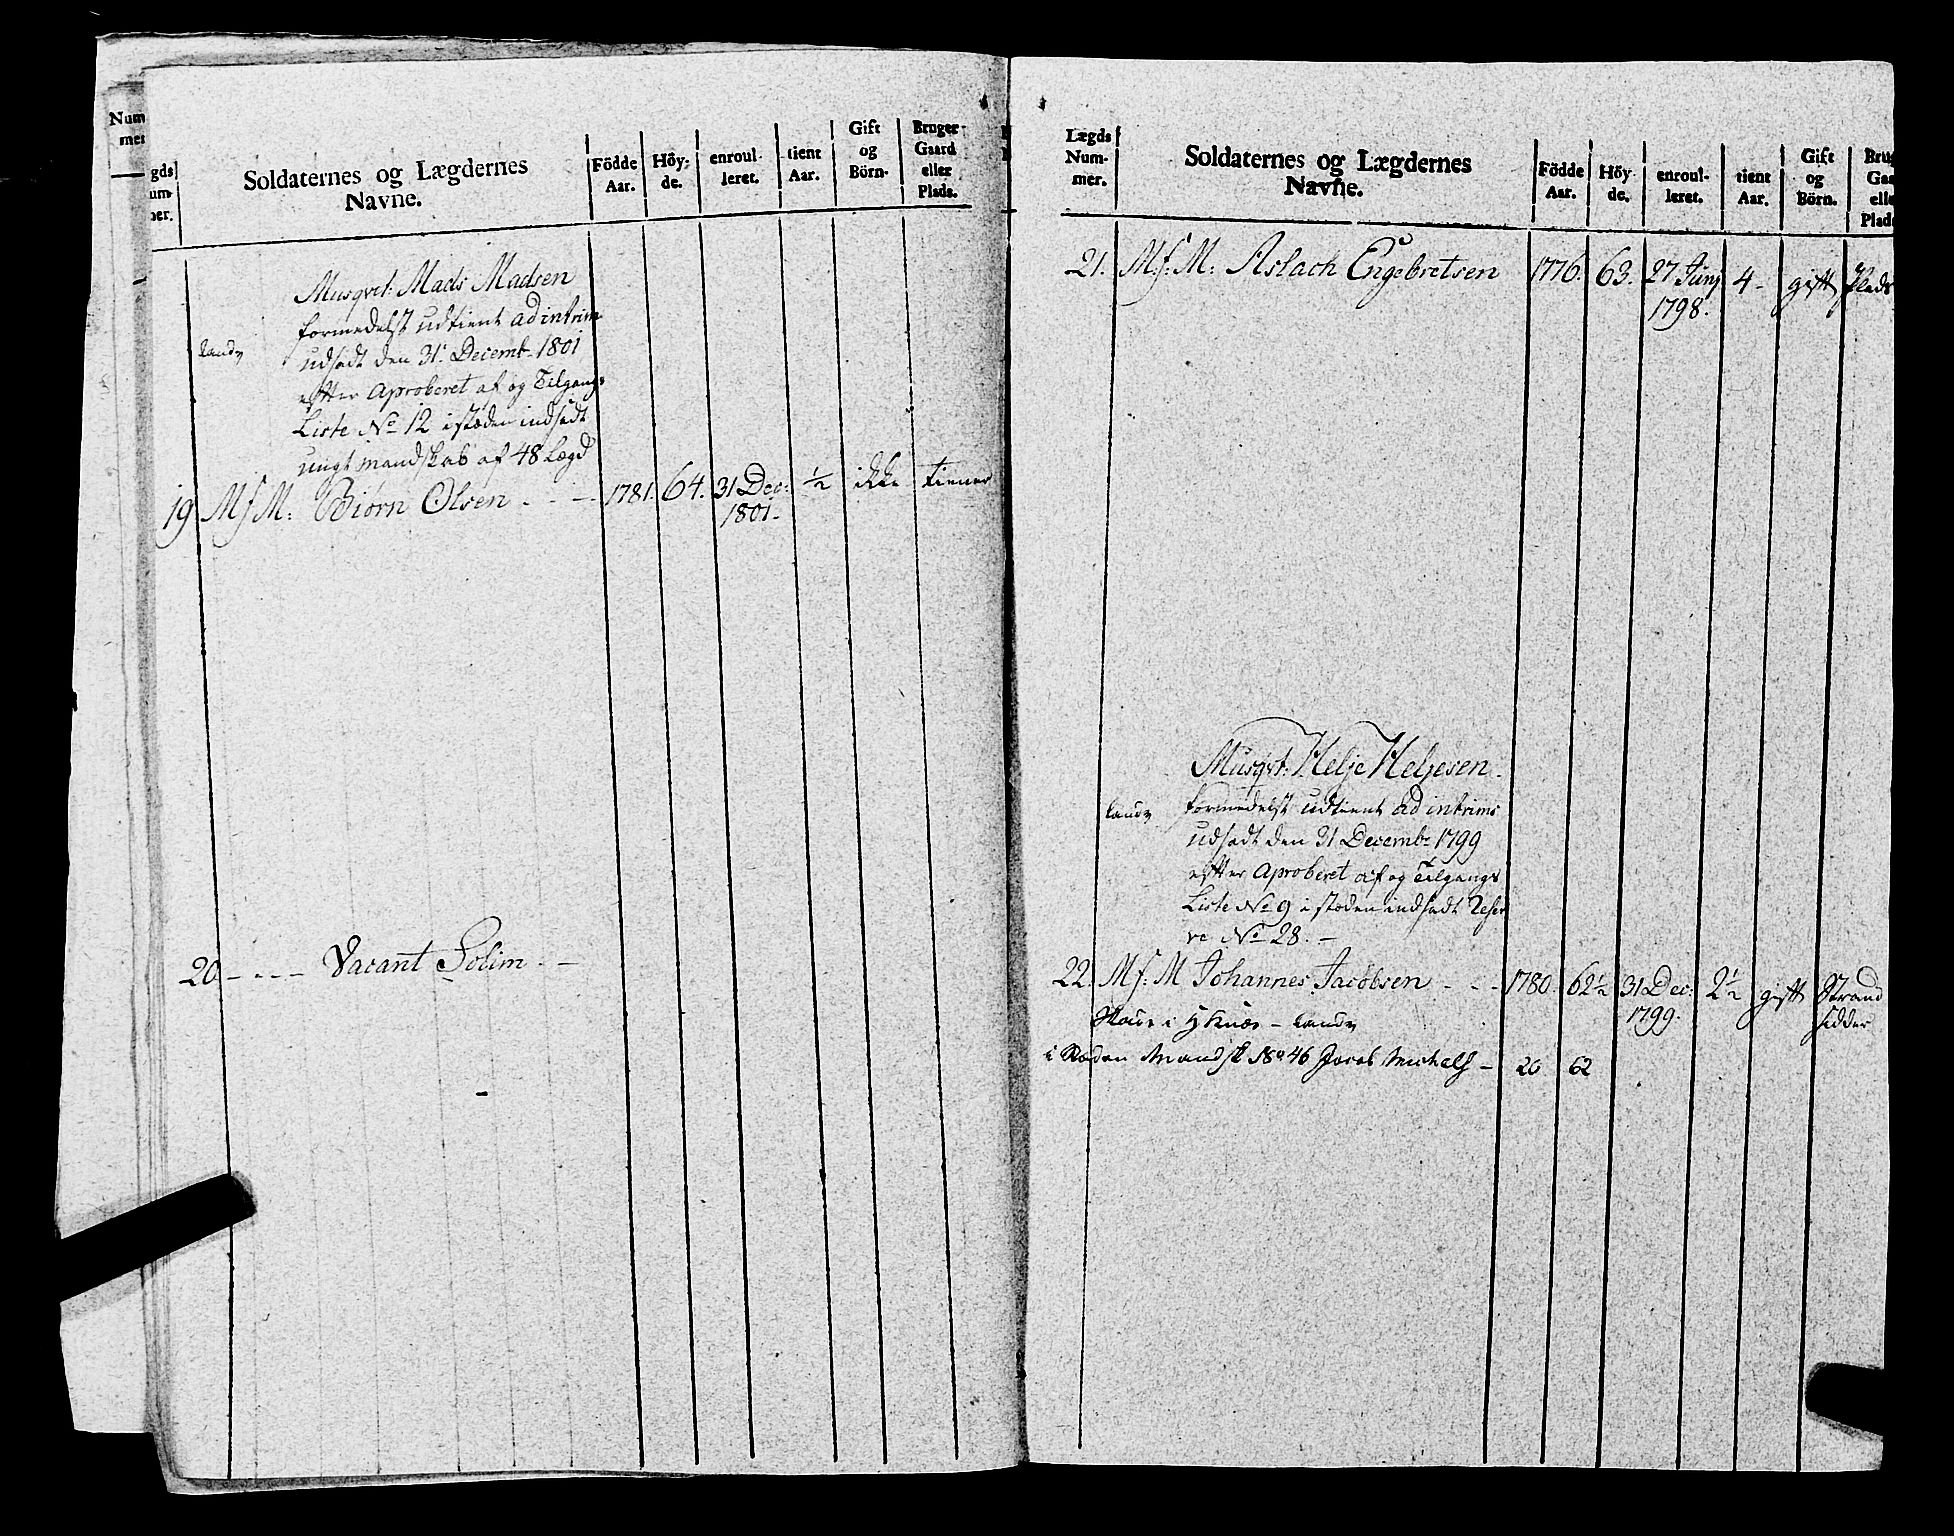 Num
mer
gds
um-
per.
Soldaternes og Lægdernes
Navne.
Födde
Aar.
Höy-
de.
enroul-
leret.
tient
Aar.
Gift
og
Börn.
Bruger-
Gaard
eller
Plads.
Musqvet: Mads Madsen
formedelst udtient ad intrim
Landv
udsadt den 31. Decemb. 1801
efter Aproberet af og Tilgangs
Liste No 12 i stæden indsadt
ungt mandskab af 48 Lægd
19 M f M: Biörn Olsen - - - 1781. 64. 31 Dec: ½ ikke tiener
1801.
20 - - - - Vacant Solim - -
Lægds
Num-
mer.
Soldaternes og Lægdernes
Navne.
Födde
Aar.
Höy-
de.
enroul-
leret.
tient
Aar.
Gift
og
Börn.
Brug
Gaa
elle
Plads
21. M: f: M: Aslach Engebretsen 1776. 63. 27 Junj 4 - gift Plads
1798.
Musqvt: Helje Heljesen.
Landv formedelst udtient ad intrims
udsadt den 31 Decemb: 1799
efter Aproberet af og Tilgangs
Liste No 9 i stæden indsadt Reser
ve No 28. -
22. M f: M Johannes Jacobsen - - - 1780. 62½ 31 Dec: 2½ gift Strand
1799. sidder
i - Landv
i Stæden Mandsk 46 Jacob Michels - 20 62